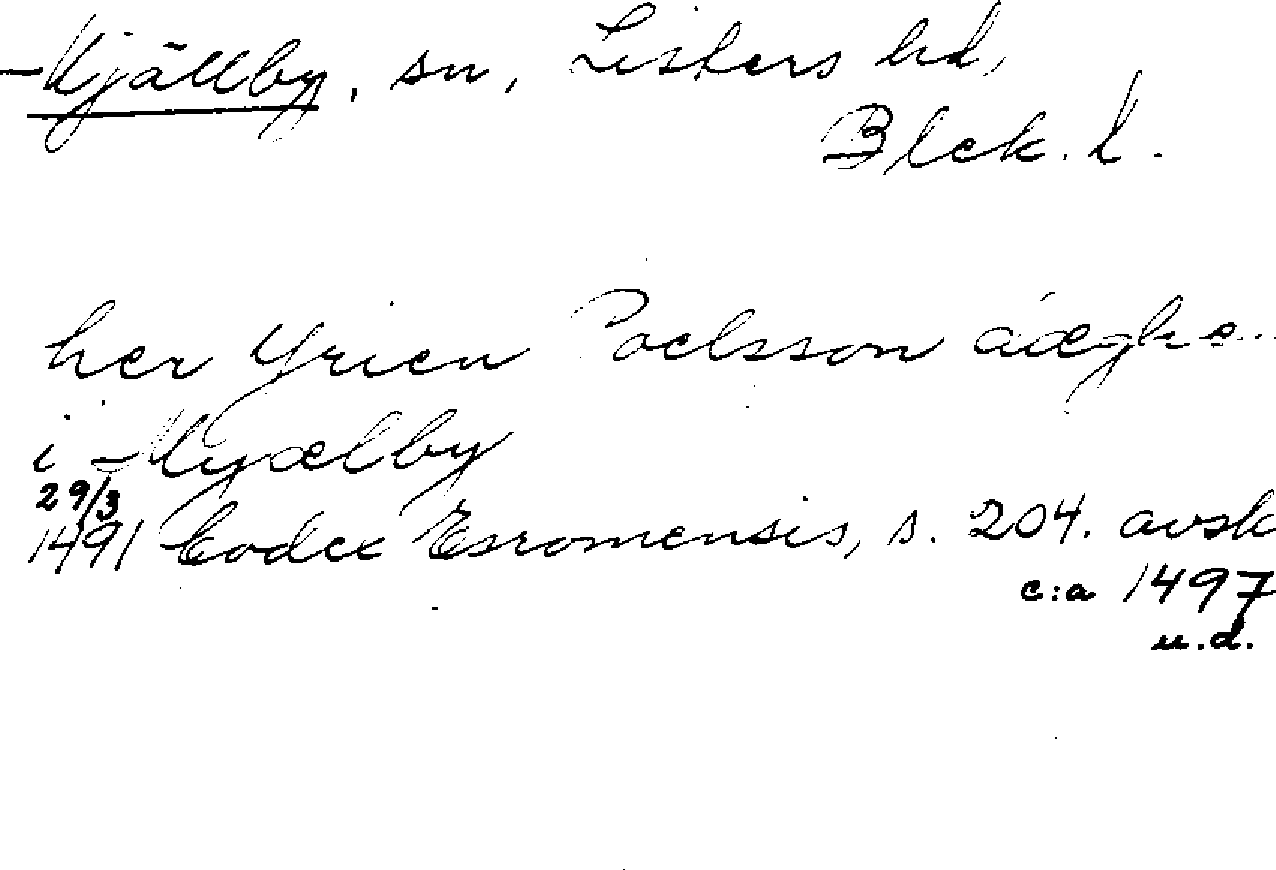 Mjällby, sn, Listers hd,
Blek. l.
her Yrien Poelsson
i Myælby
29/3
1491 Codex Esromensis, s. 204. avsk
c:a 1497
u.d.